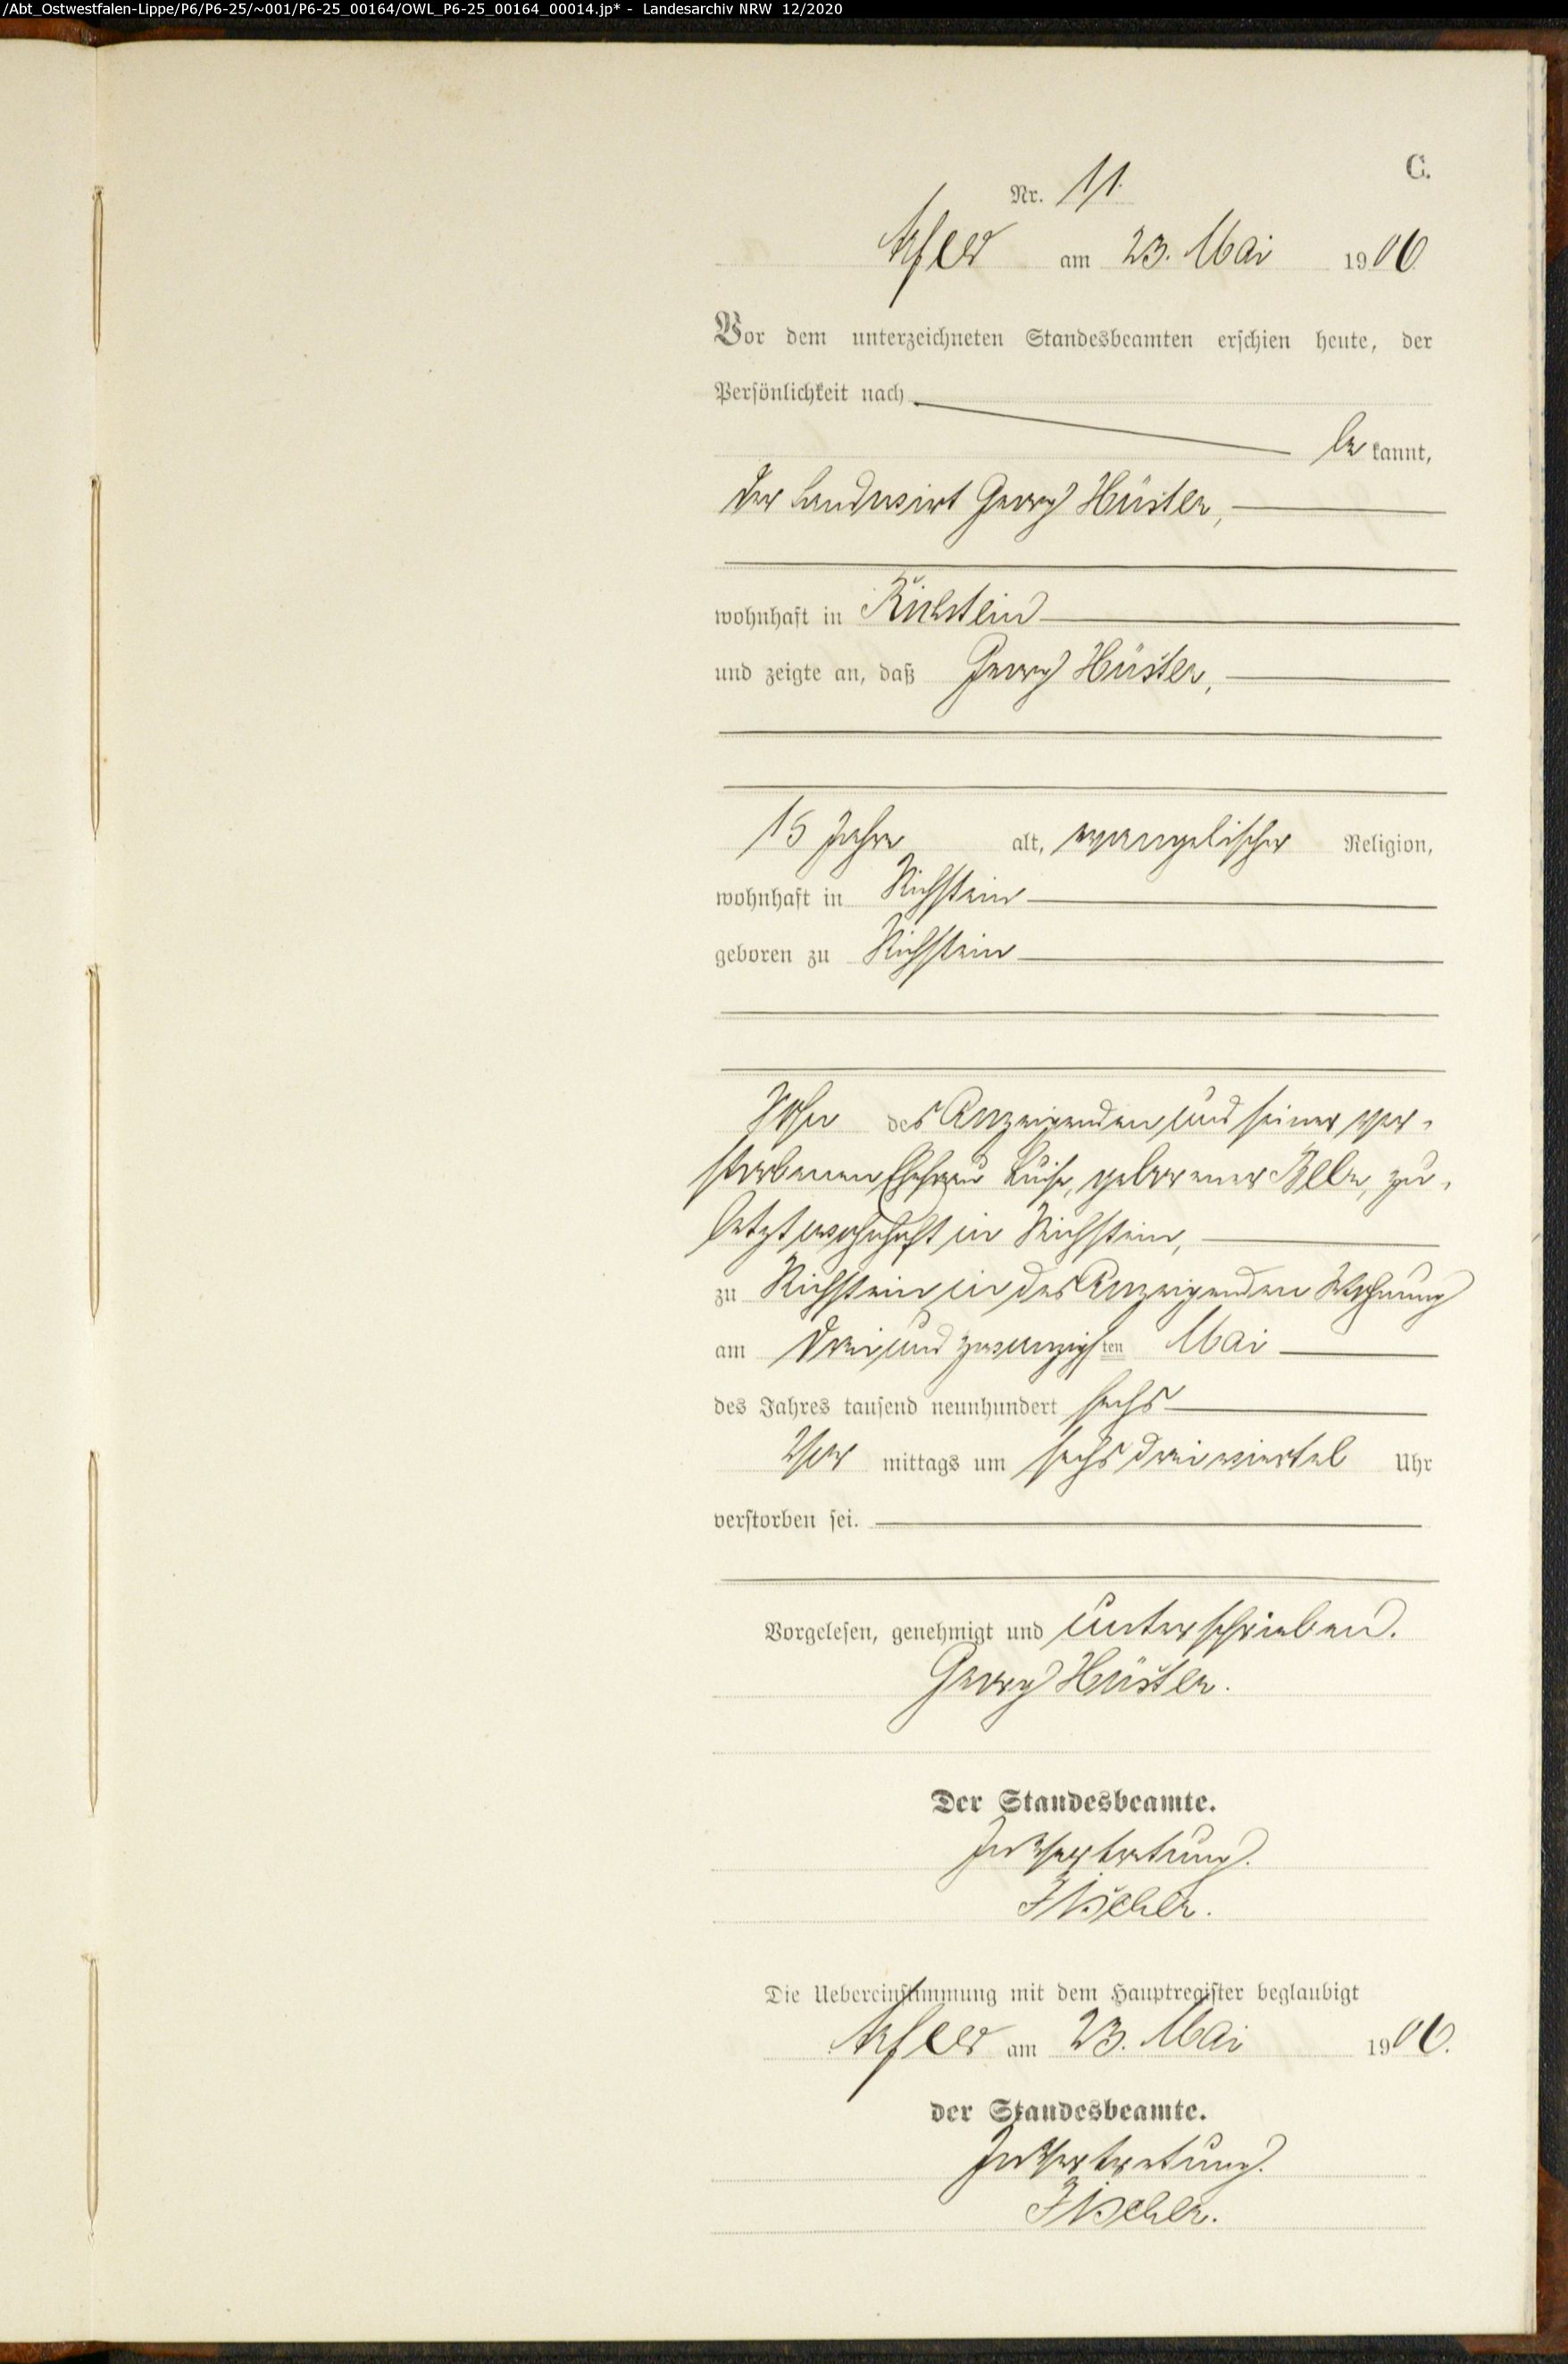 /Abt_Ostwestfalen-Lippe/P6/P6-25/~001/P6-25_00164/OWL_P6-25_00164_00014.jp* - Landesarchiv NRW 12/2020
C.
Nr. 11.
Arfeld am 23. Mai 1906
Vor dem unterzeichneten Standesbeamten erschien heute, der
Persönlichkeit nach
be kannt,
der Landwirt Georg Hüster,
wohnhaft in Richstein
und zeigte an, daß Georg Hüster,
15 Jahre alt, evangelischer Religion,
wohnhaft in Richstein
geboren zu Richstein
Sohn des Anzeigenden und seiner ver-
storbenen Ehefrau Luise, geborener Belle, zu-
letzt wohnhaft in Richstein,
zu Richstein in des Anzeigenden Wohnung
am drei und zwanzigsten Mai
des Jahres tausend neunhundert sechs
Vor mittags um sechs dreiviertel Uhr
verstorben sei.
Vorgelesen, genehmigt und unterschrieben.
Georg Hüster.
Der Standesbeamte.
In Vertretung.
Die Uebereinstimmung mit dem Hauptregister beglaubigt
Arfeld am 23. Mai 1906.
der Standesbeamte.
In Vertretung.